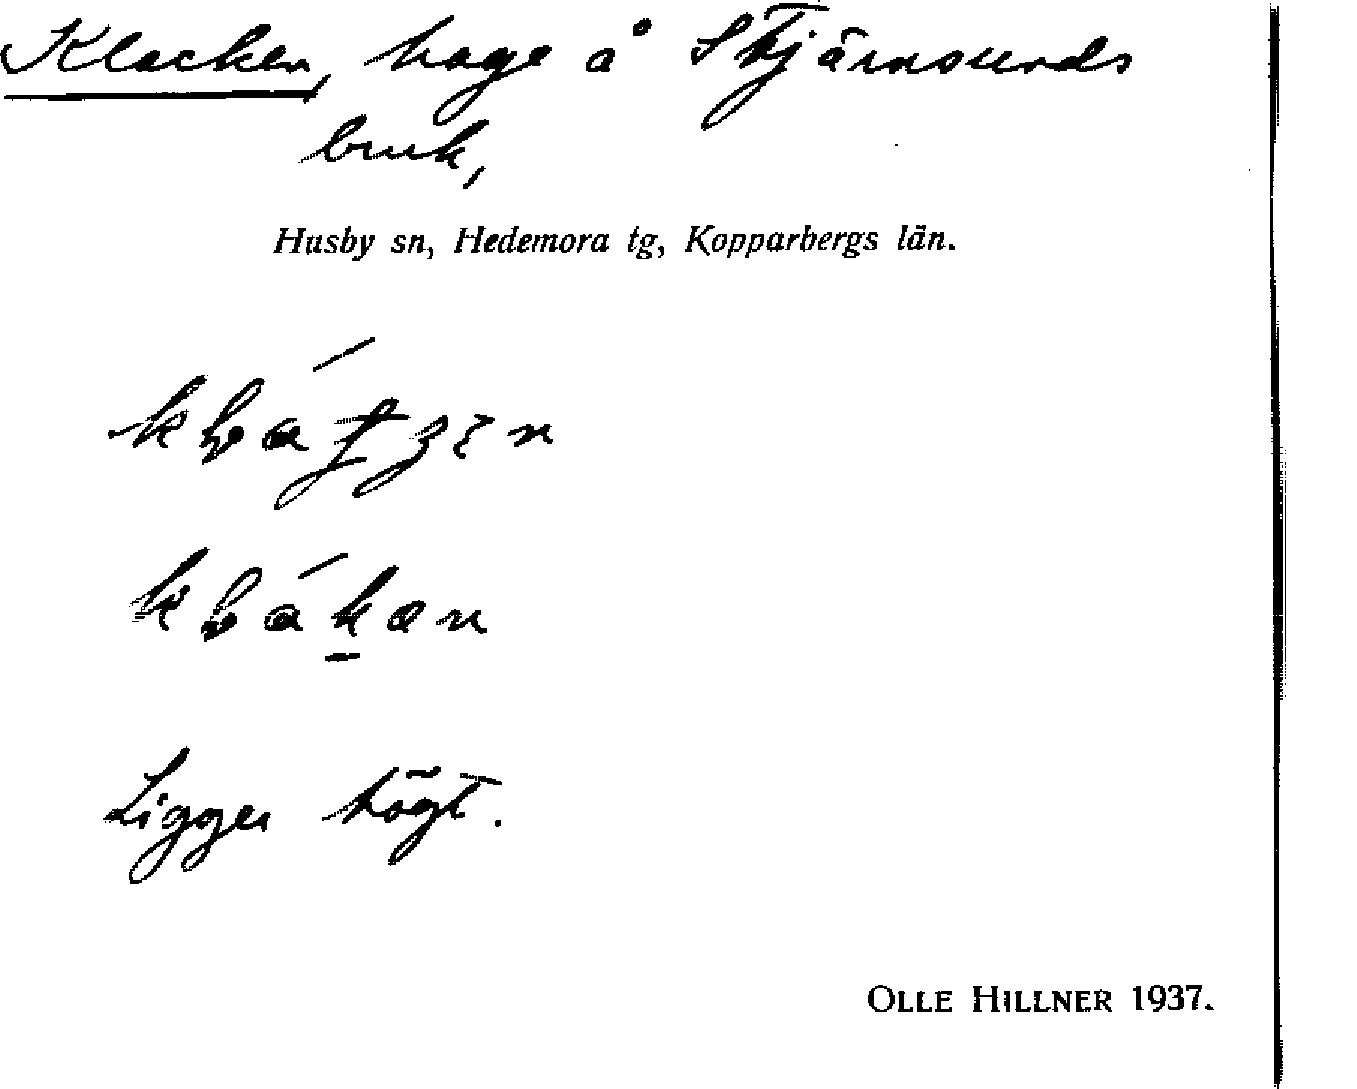 Klacken, hage å Stjärnsunds
bruk,
Husby sn, Hedemora tg, Kopparbergs län.
Ligger högt.
OLLE HILLNER 1937.